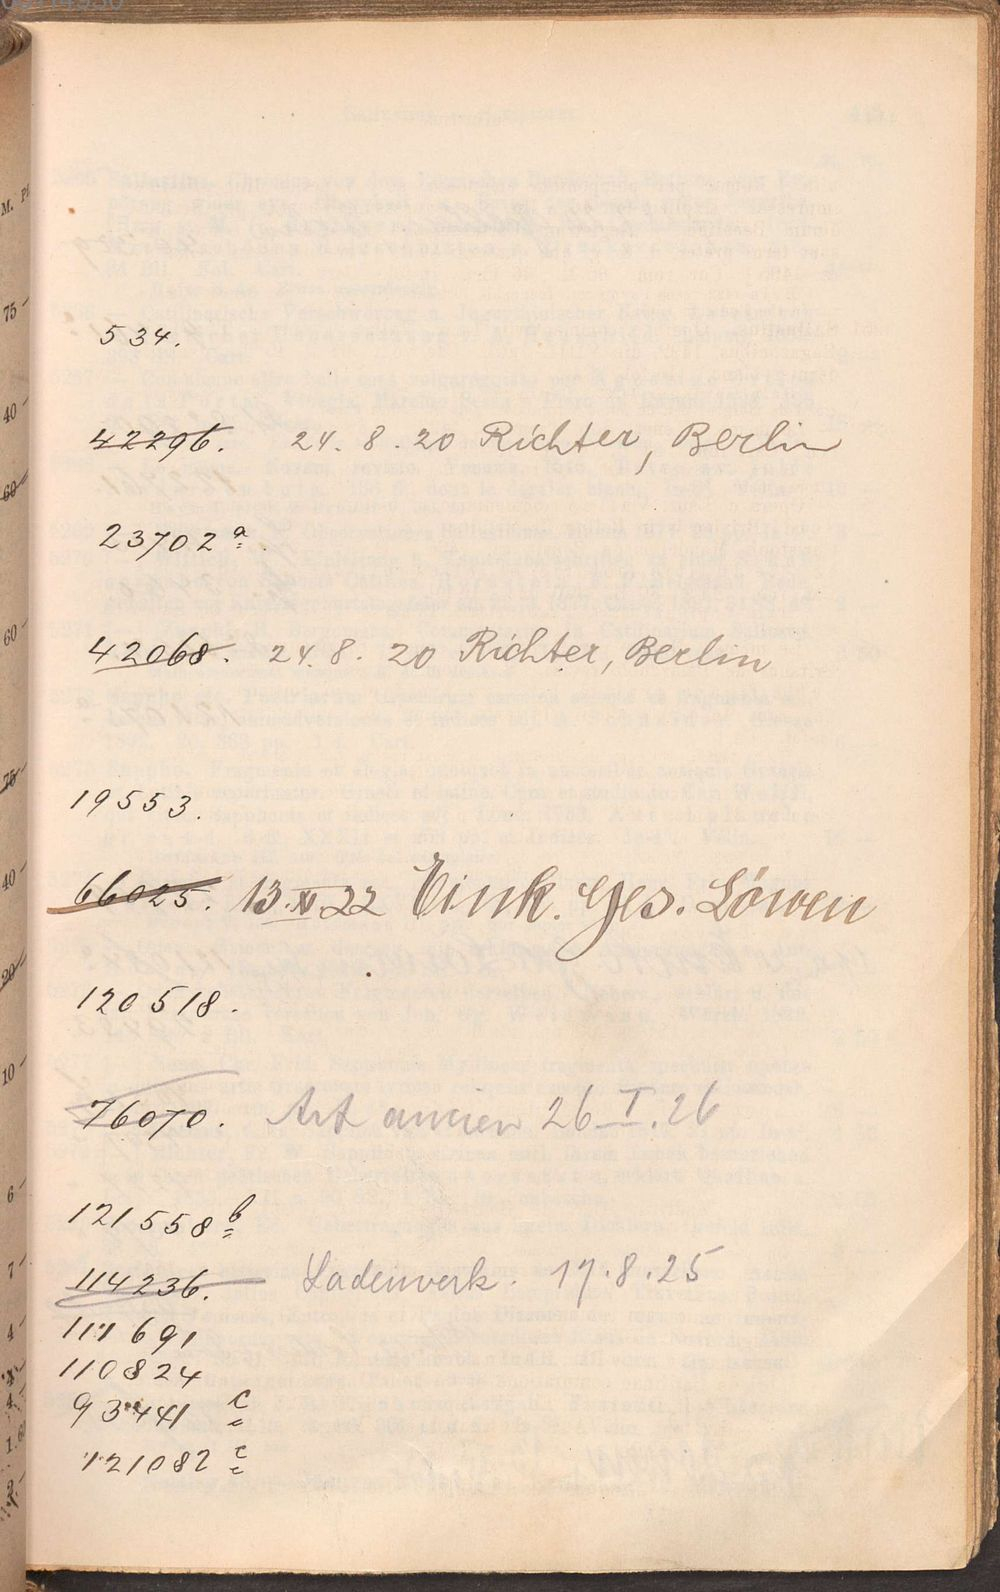 M. Pf
75
534.
40
42296. 24. 8. 20 Richter, Berlin
60
23702 a
60
42068. 24. 8. 20 Richter, Berlin
75
19553.
40
66025. 13. XI 22 Eink. Ges. Löwen
20
120518.
10
76070. Art ancien 26 I. 26
6
121558 b
7
114236. Ladenverk. 17.8.25
4
111691
110824
4
93441 c
121082 c